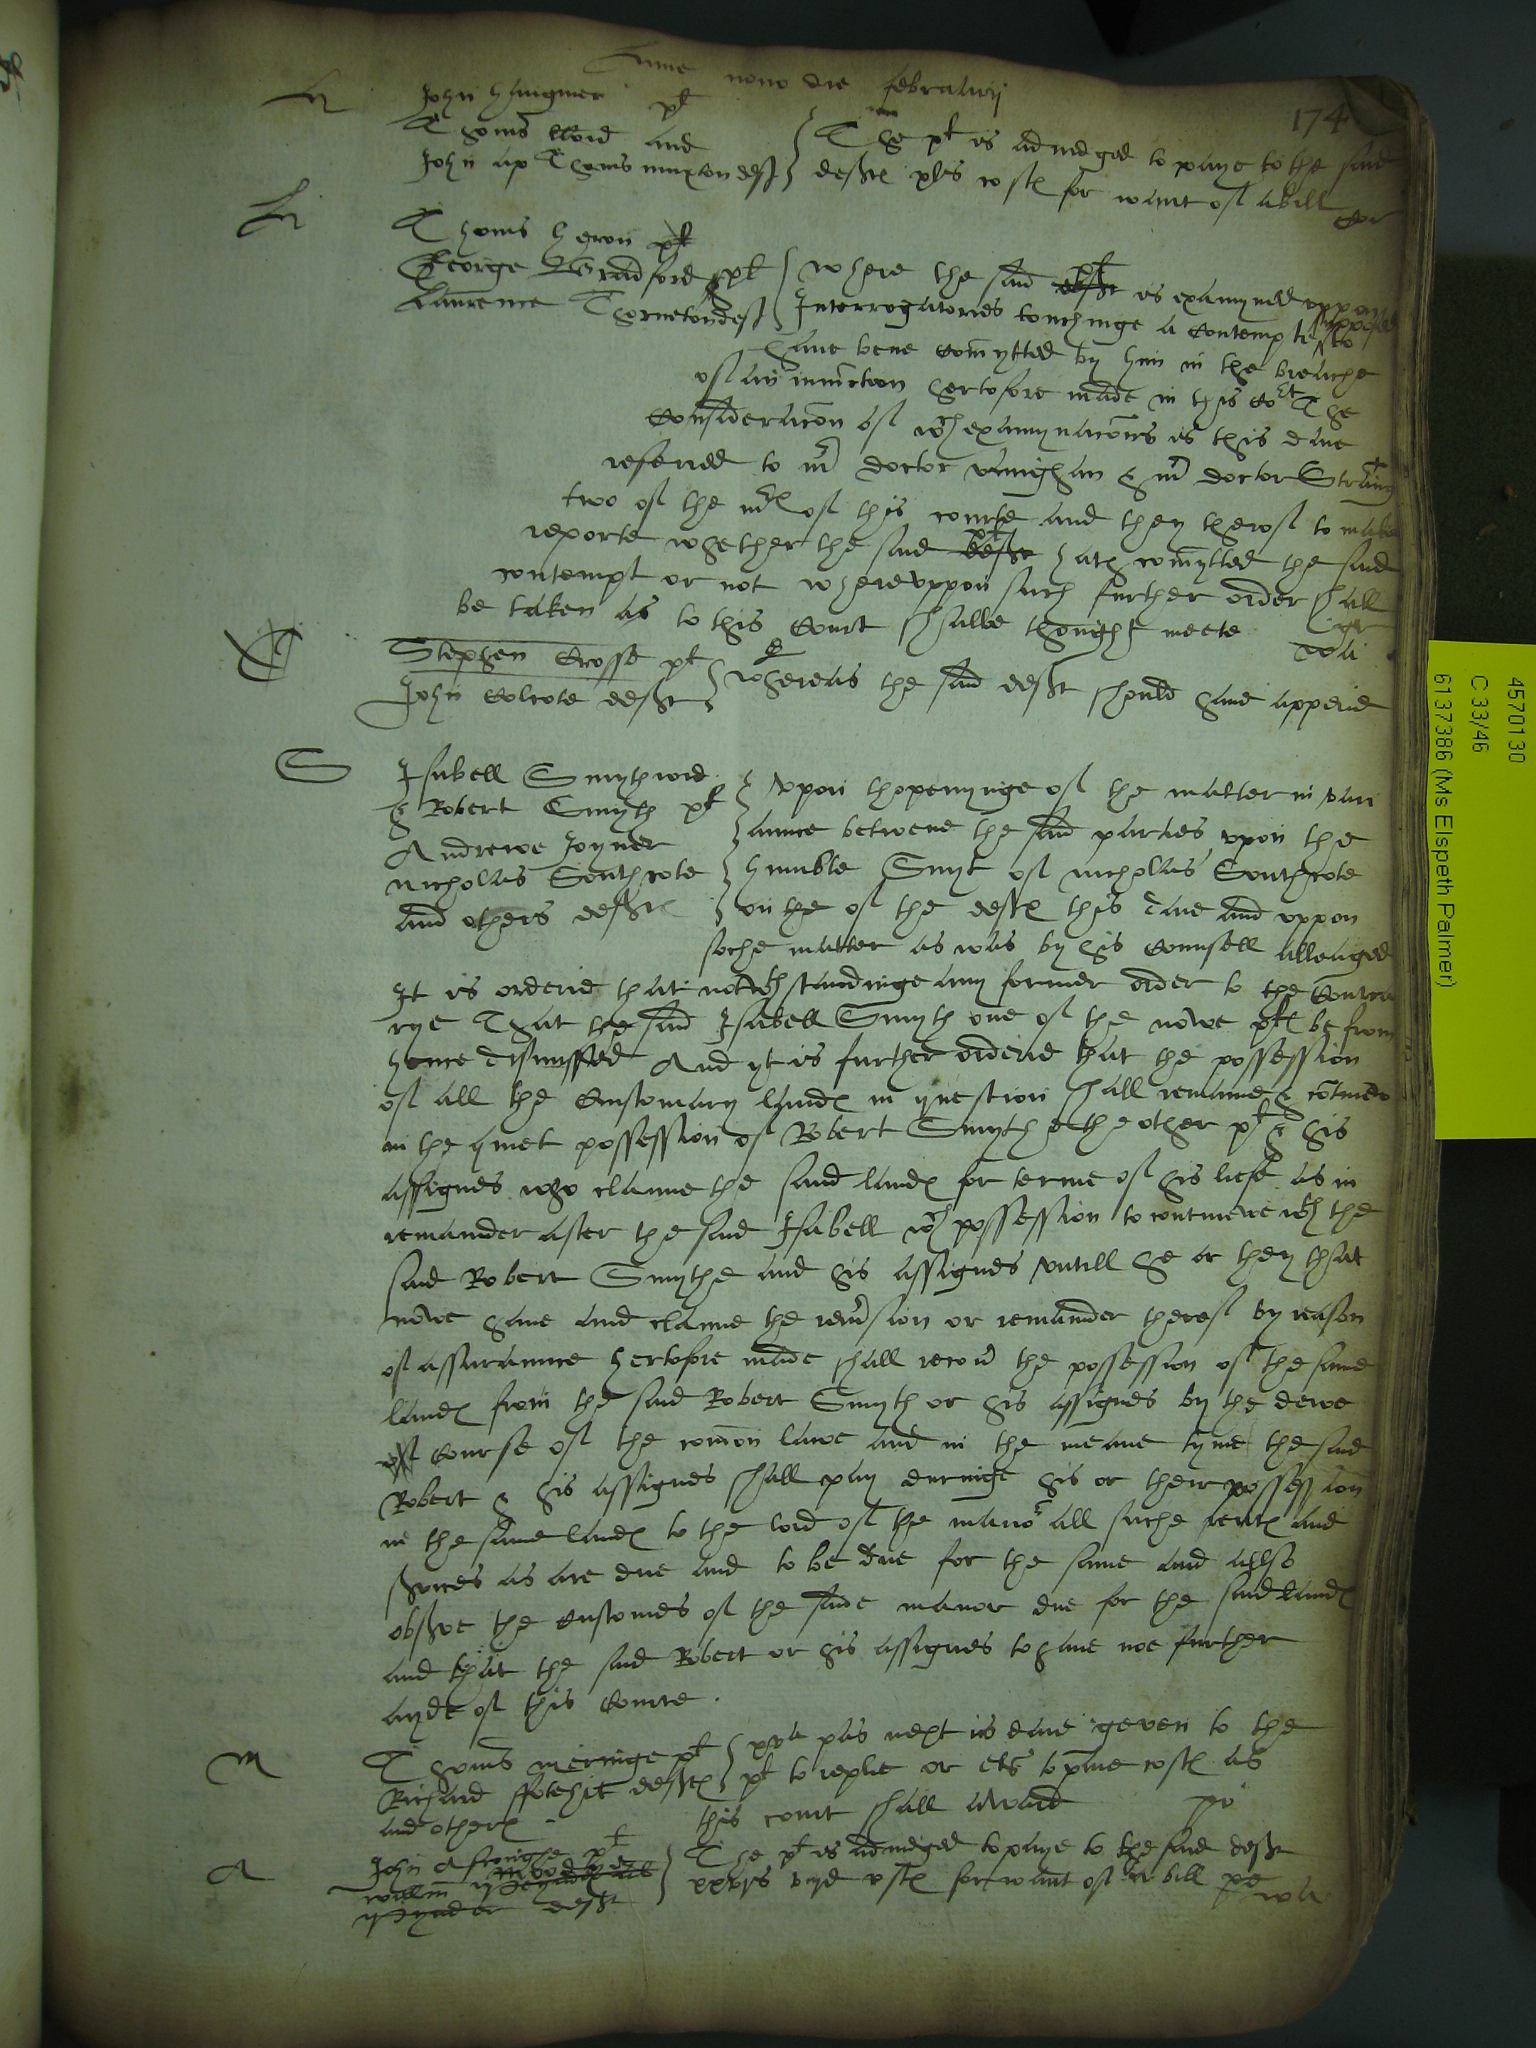 nono die februarij
174
John
Thoms Word and
John ap Thoms
The plt is adiudged to paye to the said
deftes xls costes for want of a bill
Thoms heron plt
George Bradford plt
Laurence Thorneton deft
where the said plt is examyned uppon
Interrogatories touchinge a contempte supposed to
have bene comytted by him in the breache
of an iniunction hertofore made in this Cort The
consideracon of wch examynacons is this daie
referred to mr doctor vaughan & mr doctor
two of the mrs of this courte and they therof to make
reporte whether the said plt hath comytted the said
contempt or not whereuppon such further order shall
be taken as to this Court shalbe thought meete
Stephen Crosse plt
John Colcote deft
whereas the said deft should have appered
S
Isabell Smyth wid
& Robert Smyth plt
Andrewe Joyner
Nicholas Southcote
and others deftes
Upon thopenynge of the matter in vari
aunce betwene the said parties upon the
humble Suyt of Nicholas Southcote
on the of the deftes this daie and uppon
suche matter as was by his Counsell alleaged
It is ordered that notwthstandinge any former order to the Contra
rye That the said Isabell Smyth one of the nowe pltes be from
hence dismissed And yt is further ordered that the possession
of all the Customary landes in question shall remaine & contineue
in the quiet possession of Robert Smyth the other plt & his
assignes who clayme the said landes for terme of his liefe as in
remainder after the said Isabell wch possession to contineue wth the
said Robert Smythe and his assignes untill he or they that
nowe have and clayme the revrsion or remainder therof by reason
of assuraunce hertofore made shall recovr the possession of the same
landes from the said Robert Smyth or his assignes by the dewe
course of the comon lawe and in the meane tyme the said
Robert & his assignes shall pay duringe his or their possession
in the same landes to the lord of the manor all suche rentes and
svices as are due and to be due for the same and allso
observe the Customes of the same manor due for the said landes
and that the said Robert or his assignes to have noe further
ayde of this Courte.
M
Thoms meringe plt
Richard deftes
and others
pas next is daie geven to the
plt to replie or els to paie costes as
this court shall award
A
John plt
willm
deft
The plt is adiudged to paye to the said deft
costes for want of a bill
4570130
C 33/46
6137386 (Ms Elspeth Palmer)